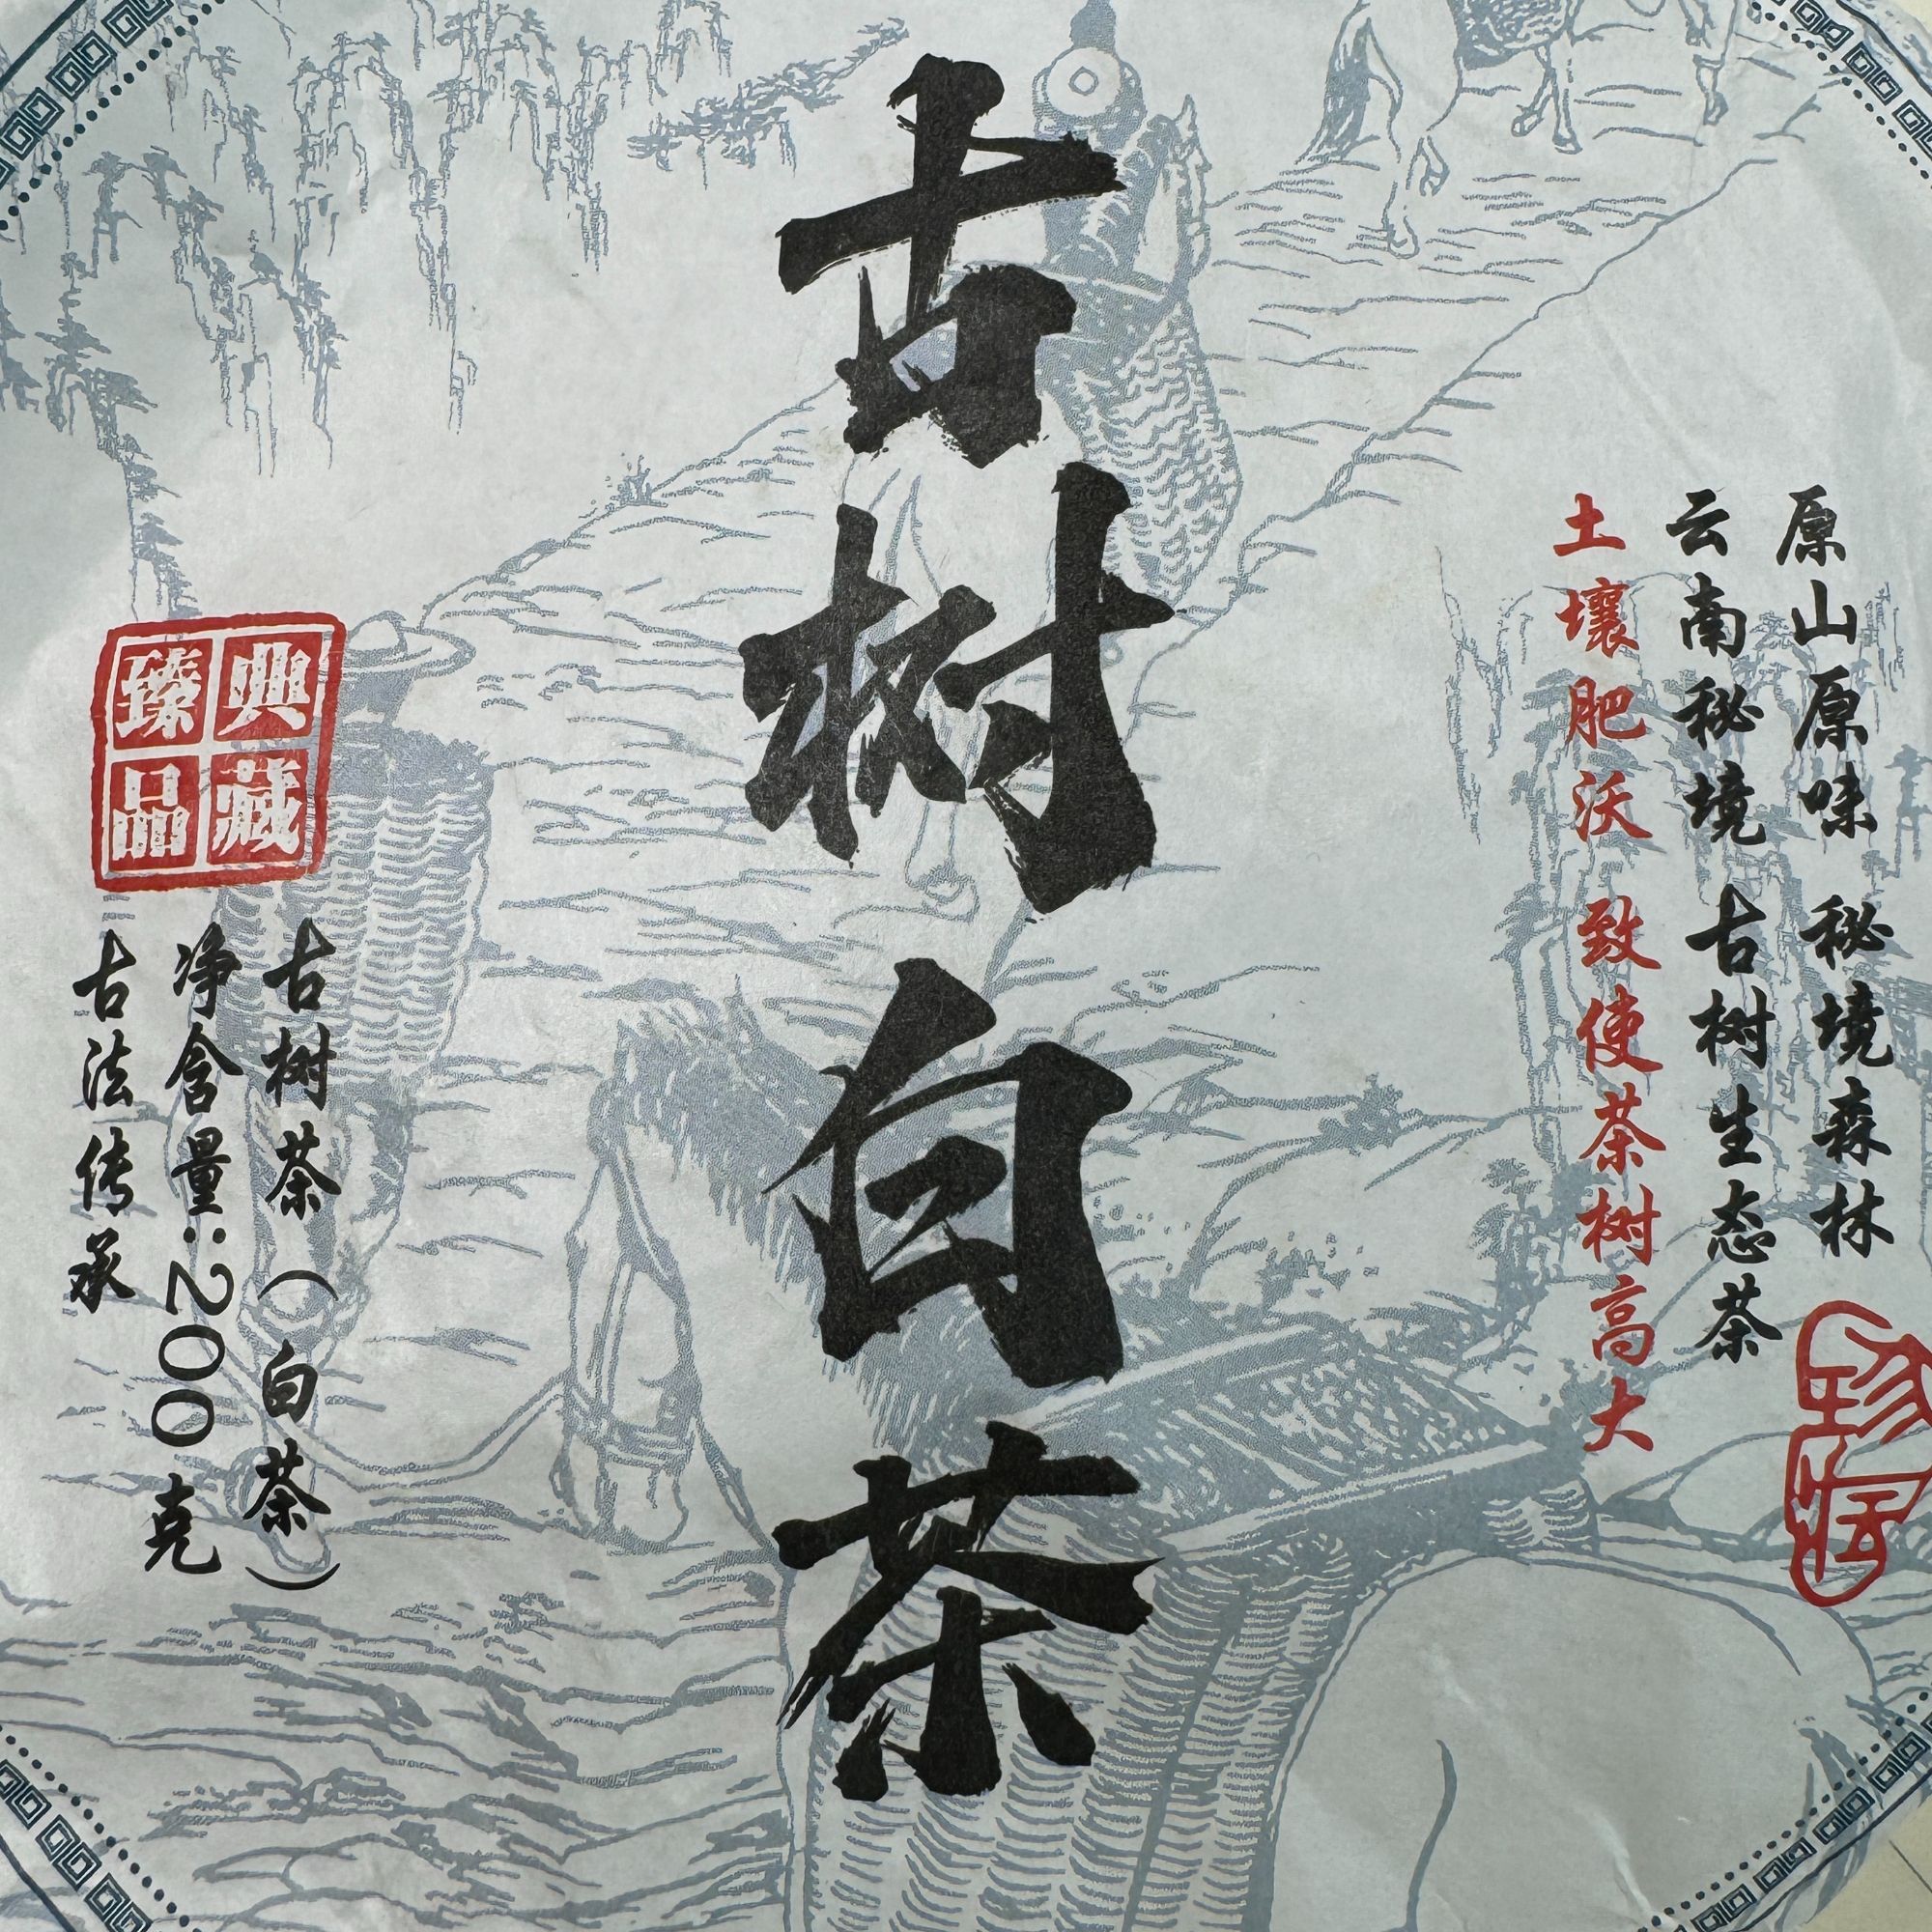 原山原味 秘境森林
云南秘境 古树生态茶
土壤肥沃 致使茶树高大
珍藏
古树白茶
典藏
臻品
古树茶（白茶）
净含量:200克
古法传承